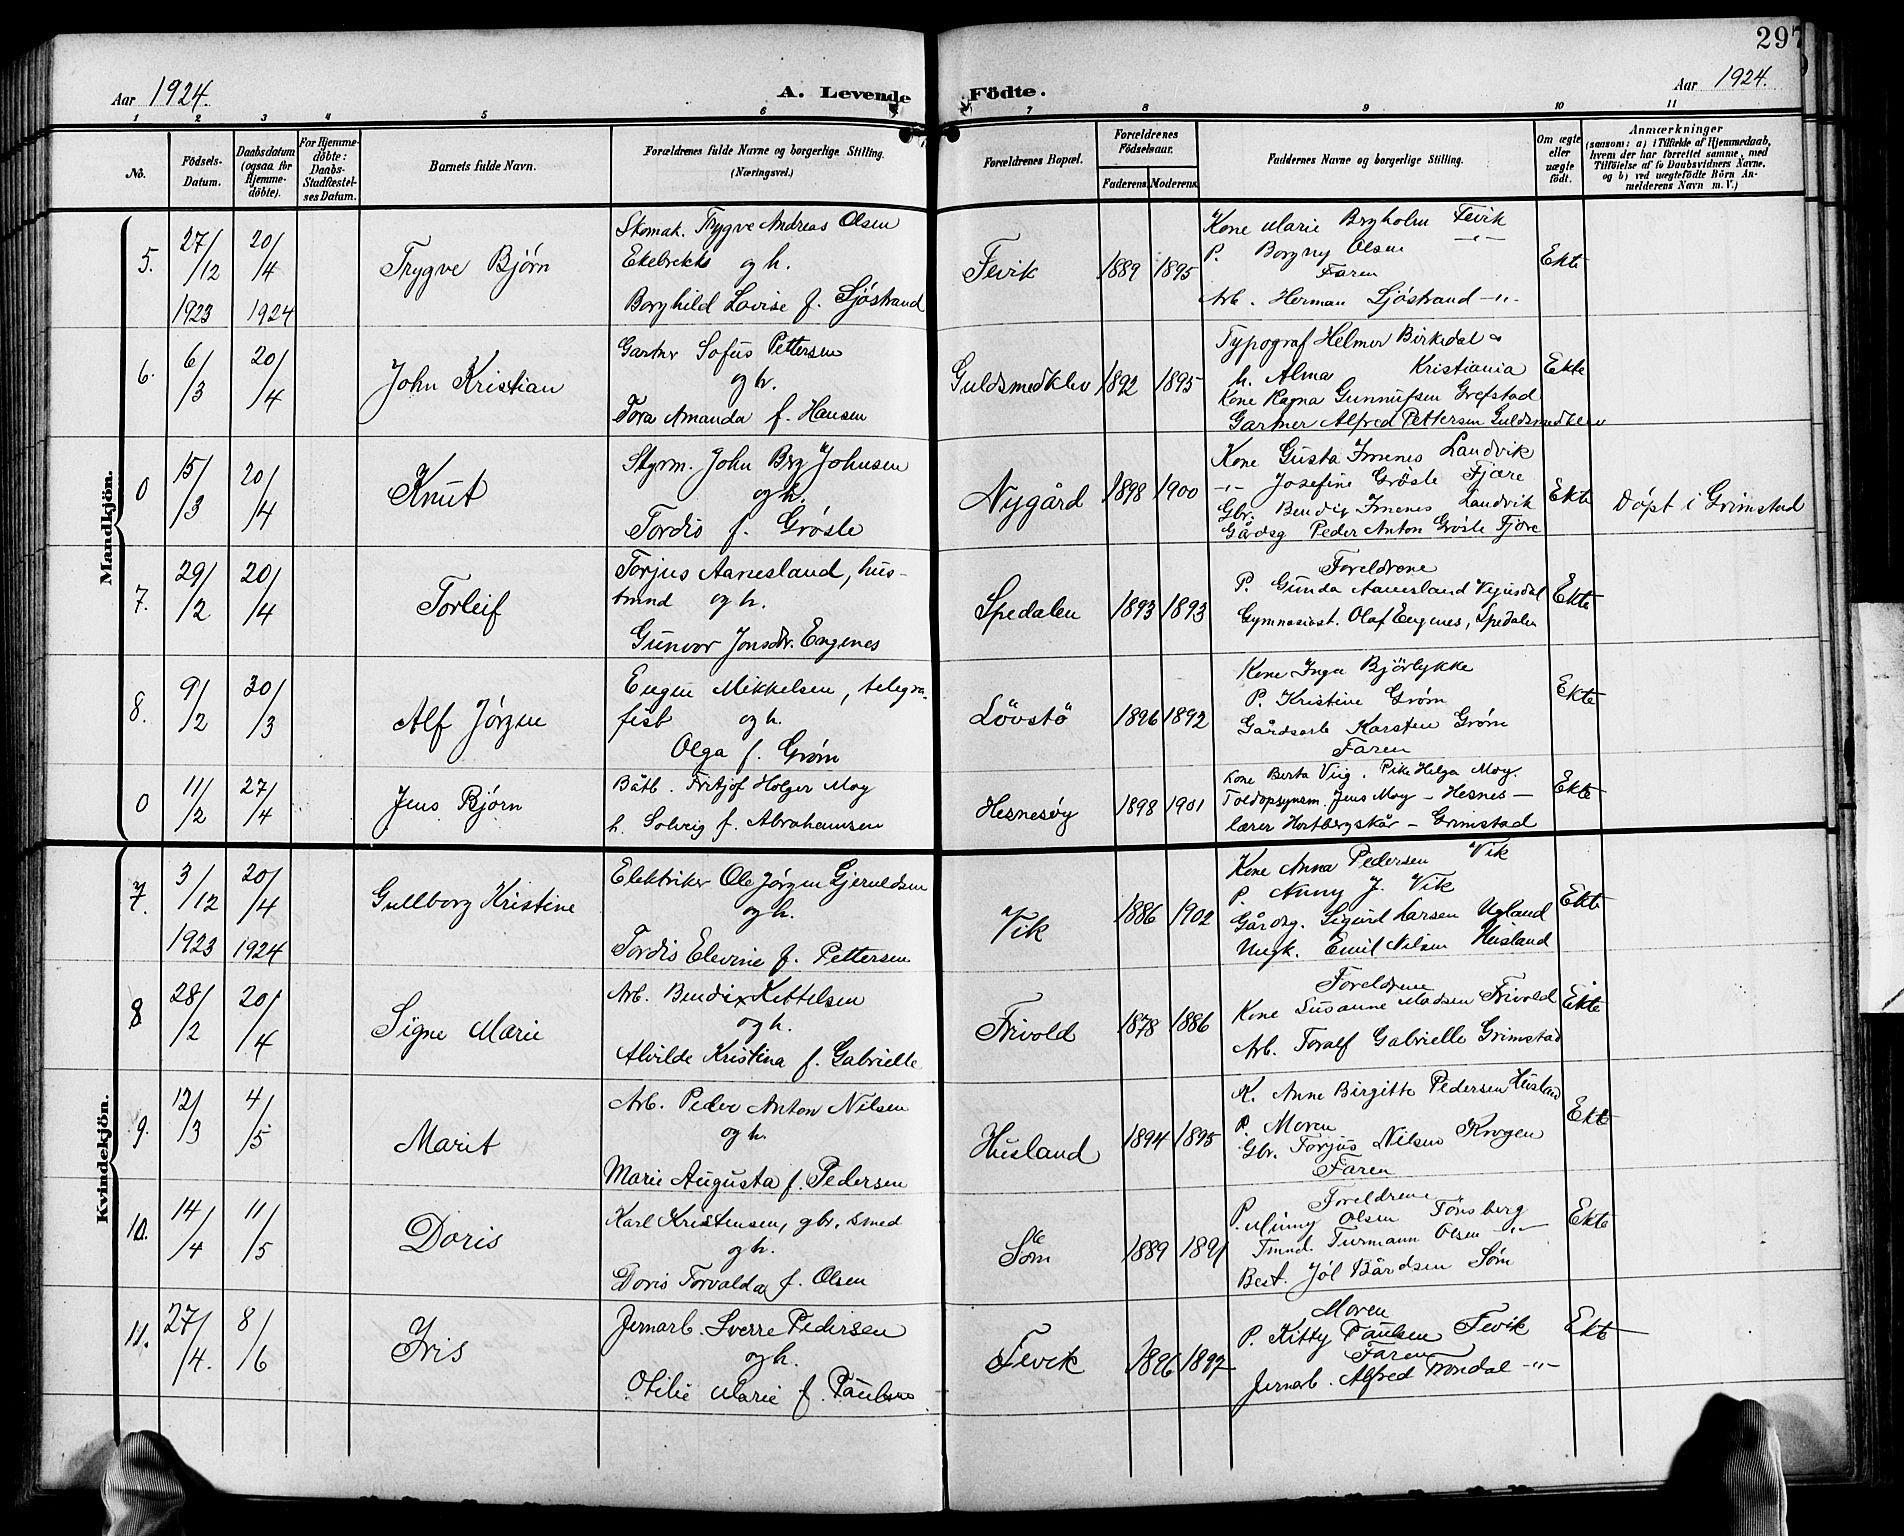 297
Aar 1924.
A. Levende Födte.
Aar 1924.
1 2 3 4 5 6 7 8 9 10 11
No.
Födsels-Datum.
Daabsdatum (ogsaa for Hjemme-döbte).
For Hjemme-döbte: Daabs-Stadfæstel-ses Datum.
Barnets fulde Navn.
Forældrenes fulde Navne og borgerlige Stilling. (Næringsvei.)
Forældrenes Bopæl.
Forældrenes Födselsaar.
Faderens. Moderens.
Faddernes Navne og borgerlige Stilling.
Om ægte eller uægte födt.
Anmærkninger
(saasom: a) i Tilfælde af Hjemmedaab, hvem der har forrettet samme, med Tilföielse af to Daabsvidners Navne, og b) ved uægtefödte Börn An-melderens Navn m. V.)
Mandkjön.
5. 27/12 1923 20/4 1924 Trygve Bjørn
Skomak. Trygve Andreas Olsen
Ekebrekks og h.
Borghild Lovise f. Sjöstrand
Fevik 1889 1895
Kone Marie Bryholm Fevik
P. Borgny Olsen -"-
Faren
Arb. Herman Sjöstrand -"-
Ekte
6. 6/3 20/4 John Kristian
Gartner Sofus Pettersen
og h.
Tora Amanda f. Hansen
Guldsmedklev 1892 1895
Typograf Helmer Birkedal o
h. Alma Kristiania
Kone Ragna Gunnufsen Grefstad
Gartner Alfred Pettersen Guldsmedklev
Ekte
0 15/3 20/4 Knut
Styrm. John Brg Johnsen
og h.
Tordis f. Grösle
Nygård 1898 1900
Kone Gusta Imenes Landvik
-"- Josefine Grösle Fjære
Gbr. Bendix Imenes Landvik
Gårdsg Peder Anton Grösle Fjære
Ekte
Döpt i Grimstad
7. 29/2 20/4 Torleif
Torjus Aanesland, hus-
tmnd og h.
Gunvor Jonsdr. Engenes
Spedalen 1893 1893
Foreldrene
P. Gunda Aanesland Vegusdal
Gymnasiast. Olaf Engenes, Spedalen
Ekte
8. 9/2 30/3 Alf Jörgen
Eugen Mikkelsen, telegra-
fist og h.
Olga f. Gröm
Lövstö 1896 1892
Kone Inga Björlykke
P. Kristine Gröm
Gårdsarb Karsten Gröm
Faren
Ekte
0 11/2 27/4 Jens Bjørn
Båtb. Fritjof Holger Moy
h. Solveig f. Abrahamsen
Hesnesøy 1898 1901
Kone Berta Viig. Pike Helga Moy.
Toldopsynsm. Jens Moy - Hesnes -
lærer Hortbergskår - Grimstad
Ekte
Kvindekjön.
7. 3/12 1923 20/4 1924 Gullborg Kristine
Elektriker Ole Jörgen Gjeruldsen
og h.
Tordis Elevine f. Pettersen
Vik 1886 1902
Kone Anna Pedersen Vik
P. Anny J. Vik
Gårdsg. Sigurd Larsen Ugland
Ungk. Emil Nilsen Husland
Ekte
8 28/2 20/4 Signe Marie
Arb. Bendix Kittelsen
og h.
Alvilde Kristina f. Gabrielle
Frivold 1878 1886
Foreldrene
Kone Susanne Madsen Frivold
Arb. Toralf Gabrielle Grimstad
Ekte
9. 12/3 4/5 Marit
Arb. Peder Anton Nilsen
og h.
Marie Augusta f. Pedersen
Husland 1894 1895
K. Anne Birgitte Pedersen Husland
P. Moren
Gbr. Torjus Nilsen Krogen
Faren
Ekte
10. 14/4 11/5 Doris
Karl Kristensen, gbr, smed
og h.
Doris Torvalda f. Olsen
Söm 1889 1891
Foreldrene
P. Minny Olsen Tönsberg
Tmnd. Turmann Olsen -"-
Best. Jöl Bårdsen Söm
Ekte
11. 27/4. 8/6 Iris
Jernarb. Sverre Pedersen
og h.
Otilie Marie f. Paulsen
Fevik 1896 1897
Moren
P. Kitty Paulsen Fevik
Faren
Jernarb. Alfred Tröndal -"-
Ekte